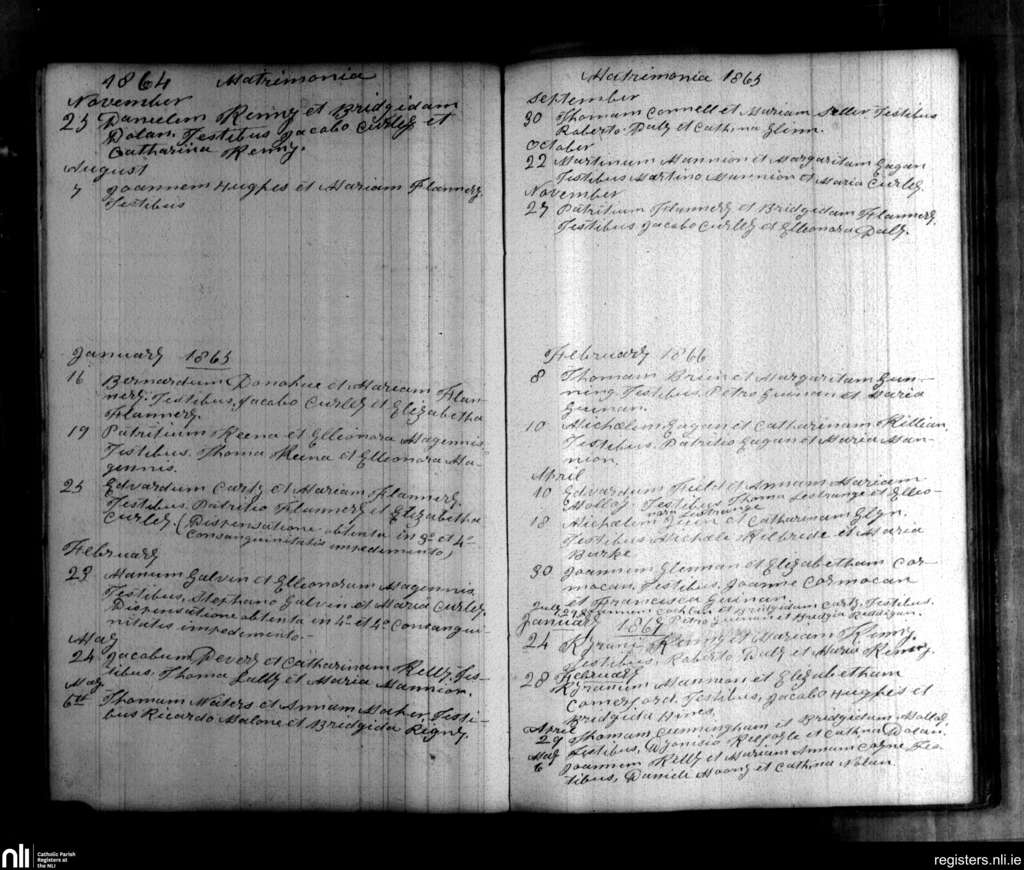 1864 Matrimonia
November
23 Danielem Kenny et Bridgidam
Dolan. Testibus Jacobo Curley et
Catharina Kenny.
August
7 Joannem Hughes et Mariam Flannery
Testibus
January 1865
16 Bernardum Donohue et Mariam Flan-
nery. Testibus, Jacobo Curley et Elizabetha
Flannery.
19 Patritium Keena et Elleonora Magennis
Testibus. Thoma Keena et Elleonora Ma-
gennis.
25 Edvardum Carty et Mariam Flannery
Testibus. Patritio Flannery et Elizabetha
Curley (Dispensatione obtenta in 3º et 4º
Consanguinitatis impedimento)
February
23 Manum Galvin et Elleonoram Magennis
Testibus, Stephano Galvin et Maria Curley.
Dispensatione obtenta in 4º et 4º Consangui-
nitatis impedimento-
May
24 Jacobum Devery et Catharinam Kelly, Tes-
tibus. Thoma Lally et Maria Mannion.
May
6th Thomam Waters et Annam Maher. Testi-
bus Ricardo Malone et Bridgida Rigney.
Matrimonia 1865
September
30 Thomam Connell et Mariam Testibus
Roberto Daly et Cathna Glinn.
October
22 Martinum Mannion et Margaritam Eagan
Testibus Martino Mannion et Maria Curley.
November
27 Patritium Flannery et Bridgidam Flannery.
Testibus Jacobo Curley et Elleonora Daly.
February 1866
8 Thomam Brien et Margaritam Gun-
ning. Testibus. Petro Guinan et Maria
Guinan.
10 Michaelem Eagan et Catharinam Killian
Testibus. Patritio Eagan et Maria Man-
nion.
April
10 Edvardum et Annam Mariam
Molloy. Testibus Thoma Lestrange et Elleo-
nora Lestrange
18 Michalem et Catharinam Glyn.
Testibus Michale Kilbride et Maria
Burke
30 Joannem Glennan et Elizabetham Cor-
mocan. Testibus, Joanne Cormocan
et Francisca Guinan.
July et Bridgidam Carty. Testibus.
Petro Guinan et Reddigan.
January 1867
24 Kyrani Kenny et Mariam Kenny.
Testibus, Roberto Daly et Maria Kenny.
February
28 Kyranium Mannion et Elizabetham
Comerford. Testibus, Jacobo Hughes et
Bridgida Hines.
April
29 Thomam Cunningham et Bridgidam Molloy
Testibus, Dyonisio et Cathna Dolan.
May
6 Joannem Kelly et Mariam Annam Coyne Tes-
tibus, Daniele Moony et Cathna Nolan.
nli
Catholic Parish
Registers at
the NLI
registers.nli.ie